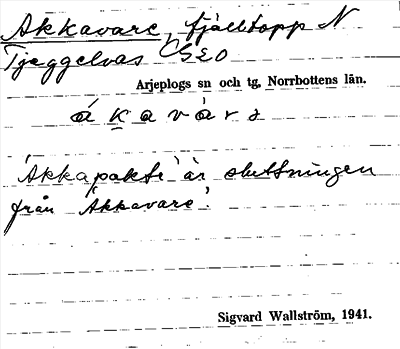 Akkavare, fjälltopp N
Tjeggelvas
Arjeplogs sn och tg, Norrbottens län.
Akkapakte är sluttningen
från Akkavare.
Sigvard Wallström, 1941.